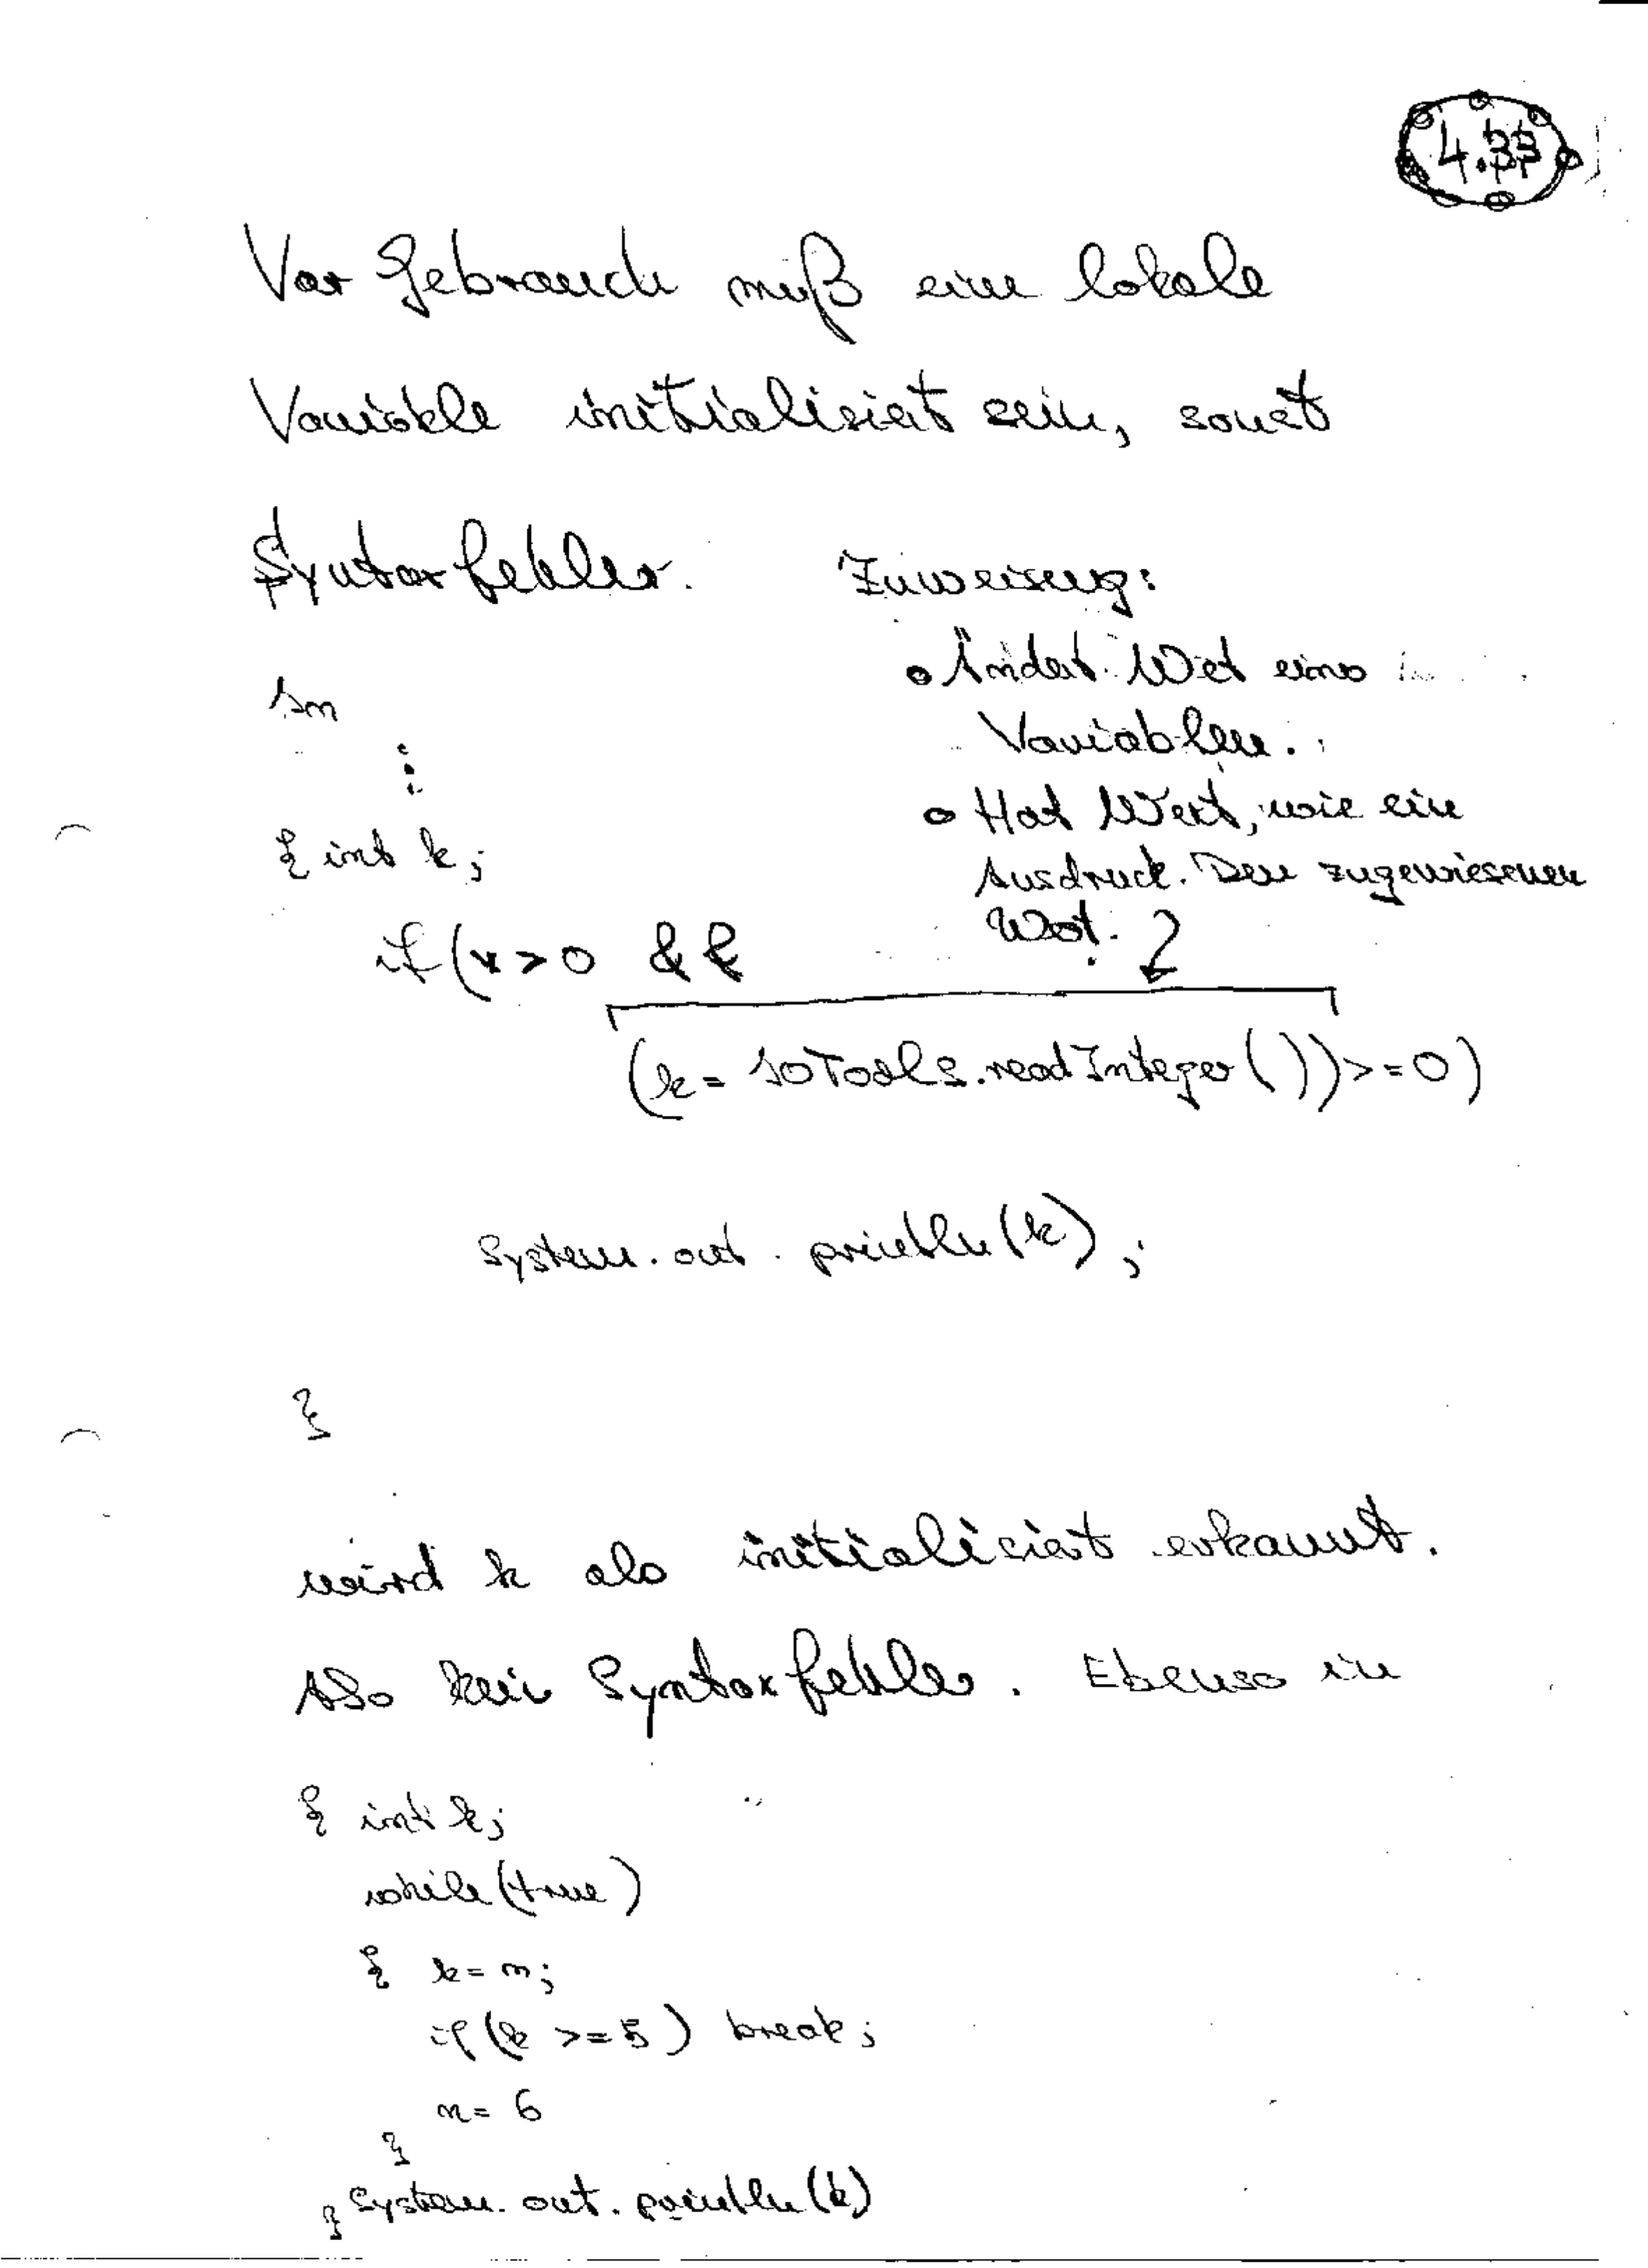 4.33
Vor Gebrauch muß eine lokale
Variable initialisiert sein, sonst
Syntaxfehler.
Zuweisung:
• Ändert Wert eines
Variablen.
• Hat Wert, wie ein
Ausdruck. Den zugewiesenen
Wert.
In
⋮
{ int k;
if (x > 0 &&
(k = IOTools.readInteger()) >= 0)
System.out.println(k);
}
wird k als initialisiert erkannt.
Also kein Syntaxfehler. Ebenso in
{ int k;
while (true)
{ k = n;
if (k >= 5) break;
n = 6
}
} System.out.println(k)